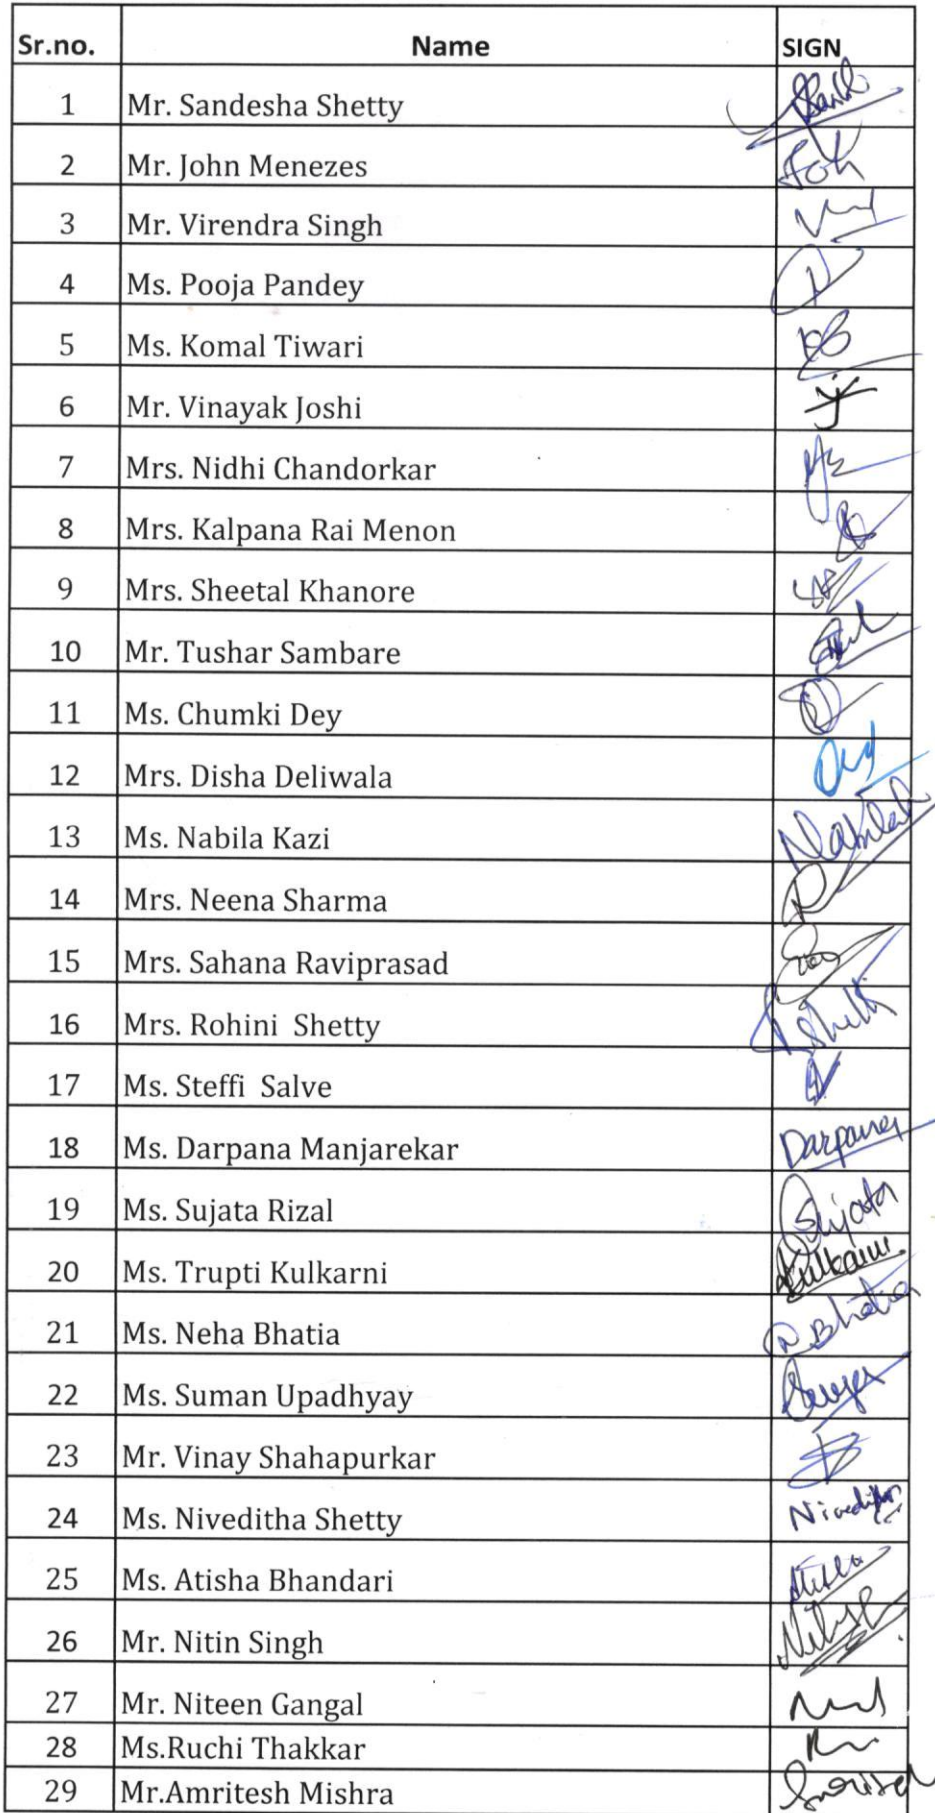 Sr.no. Name SIGN
1 Mr. Sandesha Shetty
2 Mr. John Menezes
3 Mr. Virendra Singh
4 Ms. Pooja Pandey
5 Ms. Komal Tiwari
6 Mr. Vinayak Joshi
7 Mrs. Nidhi Chandorkar
8 Mrs. Kalpana Rai Menon
9 Mrs. Sheetal Khanore
10 Mr. Tushar Sambare
11 Ms. Chumki Dey
12 Mrs. Disha Deliwala
13 Ms. Nabila Kazi
14 Mrs. Neena Sharma
15 Mrs. Sahana Raviprasad
16 Mrs. Rohini Shetty
17 Ms. Steffi Salve
18 Ms. Darpana Manjarekar Darpana
19 Ms. Sujata Rizal Sujata
20 Ms. Trupti Kulkarni
21 Ms. Neha Bhatia N Bhatia
22 Ms. Suman Upadhyay
23 Mr. Vinay Shahapurkar
24 Ms. Niveditha Shetty
25 Ms. Atisha Bhandari
26 Mr. Nitin Singh
27 Mr. Niteen Gangal
28 Ms.Ruchi Thakkar
29 Mr.Amritesh Mishra